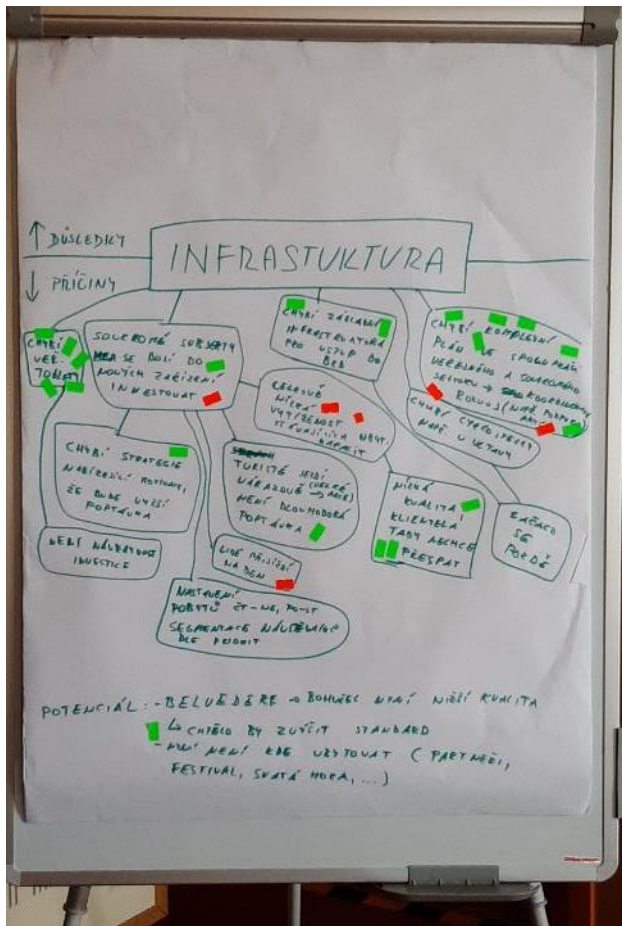 ↑ DŮSLEDKY
INFRASTUKTURA
↓ PŘÍČINY
CHYBÍ
SOUKROMÉ SUBJEKTY
SE BOJÍ DO
NOVÝCH ZAŘÍZENÍ
INVESTOVAT
CHYBÍ ZÁKLADNÍ
INFRASTRUKTURA
PRO VSTUP DO
BRD
CHYBÍ KOMPLEXNÍ
PLÁN VE SPOLUPRÁCI
VEŘEJNÉHO A SOUKROMÉHO
SEKTORU →
ROZVOJ (NAPŘ. PODPORA
CELKOVĚ
NÍZKÁ
VYTÍŽENOST UBYT.
STÁVAJÍCÍCH
KAPACIT
CHYBÍ CYKLOSTEZKY
NAPŘ. U VLTAVY
CHYBÍ STRATEGIE
ŽE BUDE VYŠŠÍ
POPTÁVKA
TURISTÉ JEZDÍ
NÁRAZOVĚ (VELKÉ → AKCE)
NENÍ DLOUHODOBÁ
POPTÁVKA
NÍZKÁ
KVALITA
KLIENTELA
TADY NECHCE
PŘESPAT
ZAČALO
SE
POZDĚ
NENÍ NÁVRATNOST
INVESTICE
LIDÉ PŘIJÍŽDÍ
NA DEN
NASTAVENÍ
POBYTŮ ČT-NE, PO-ST
SEGMENTACE NÁVŠTĚVNÍKŮ
DLE PRIORIT
POTENCIÁL: - BELVEDERE → BOHUŽEL NYNÍ NIŽŠÍ KVALITA
↳ CHTĚLO BY ZVÝŠIT STANDARD
- NYNÍ NENÍ KDE UBYTOVAT (PARTNEŘI,
FESTIVAL, SVATÁ HORA, ...)